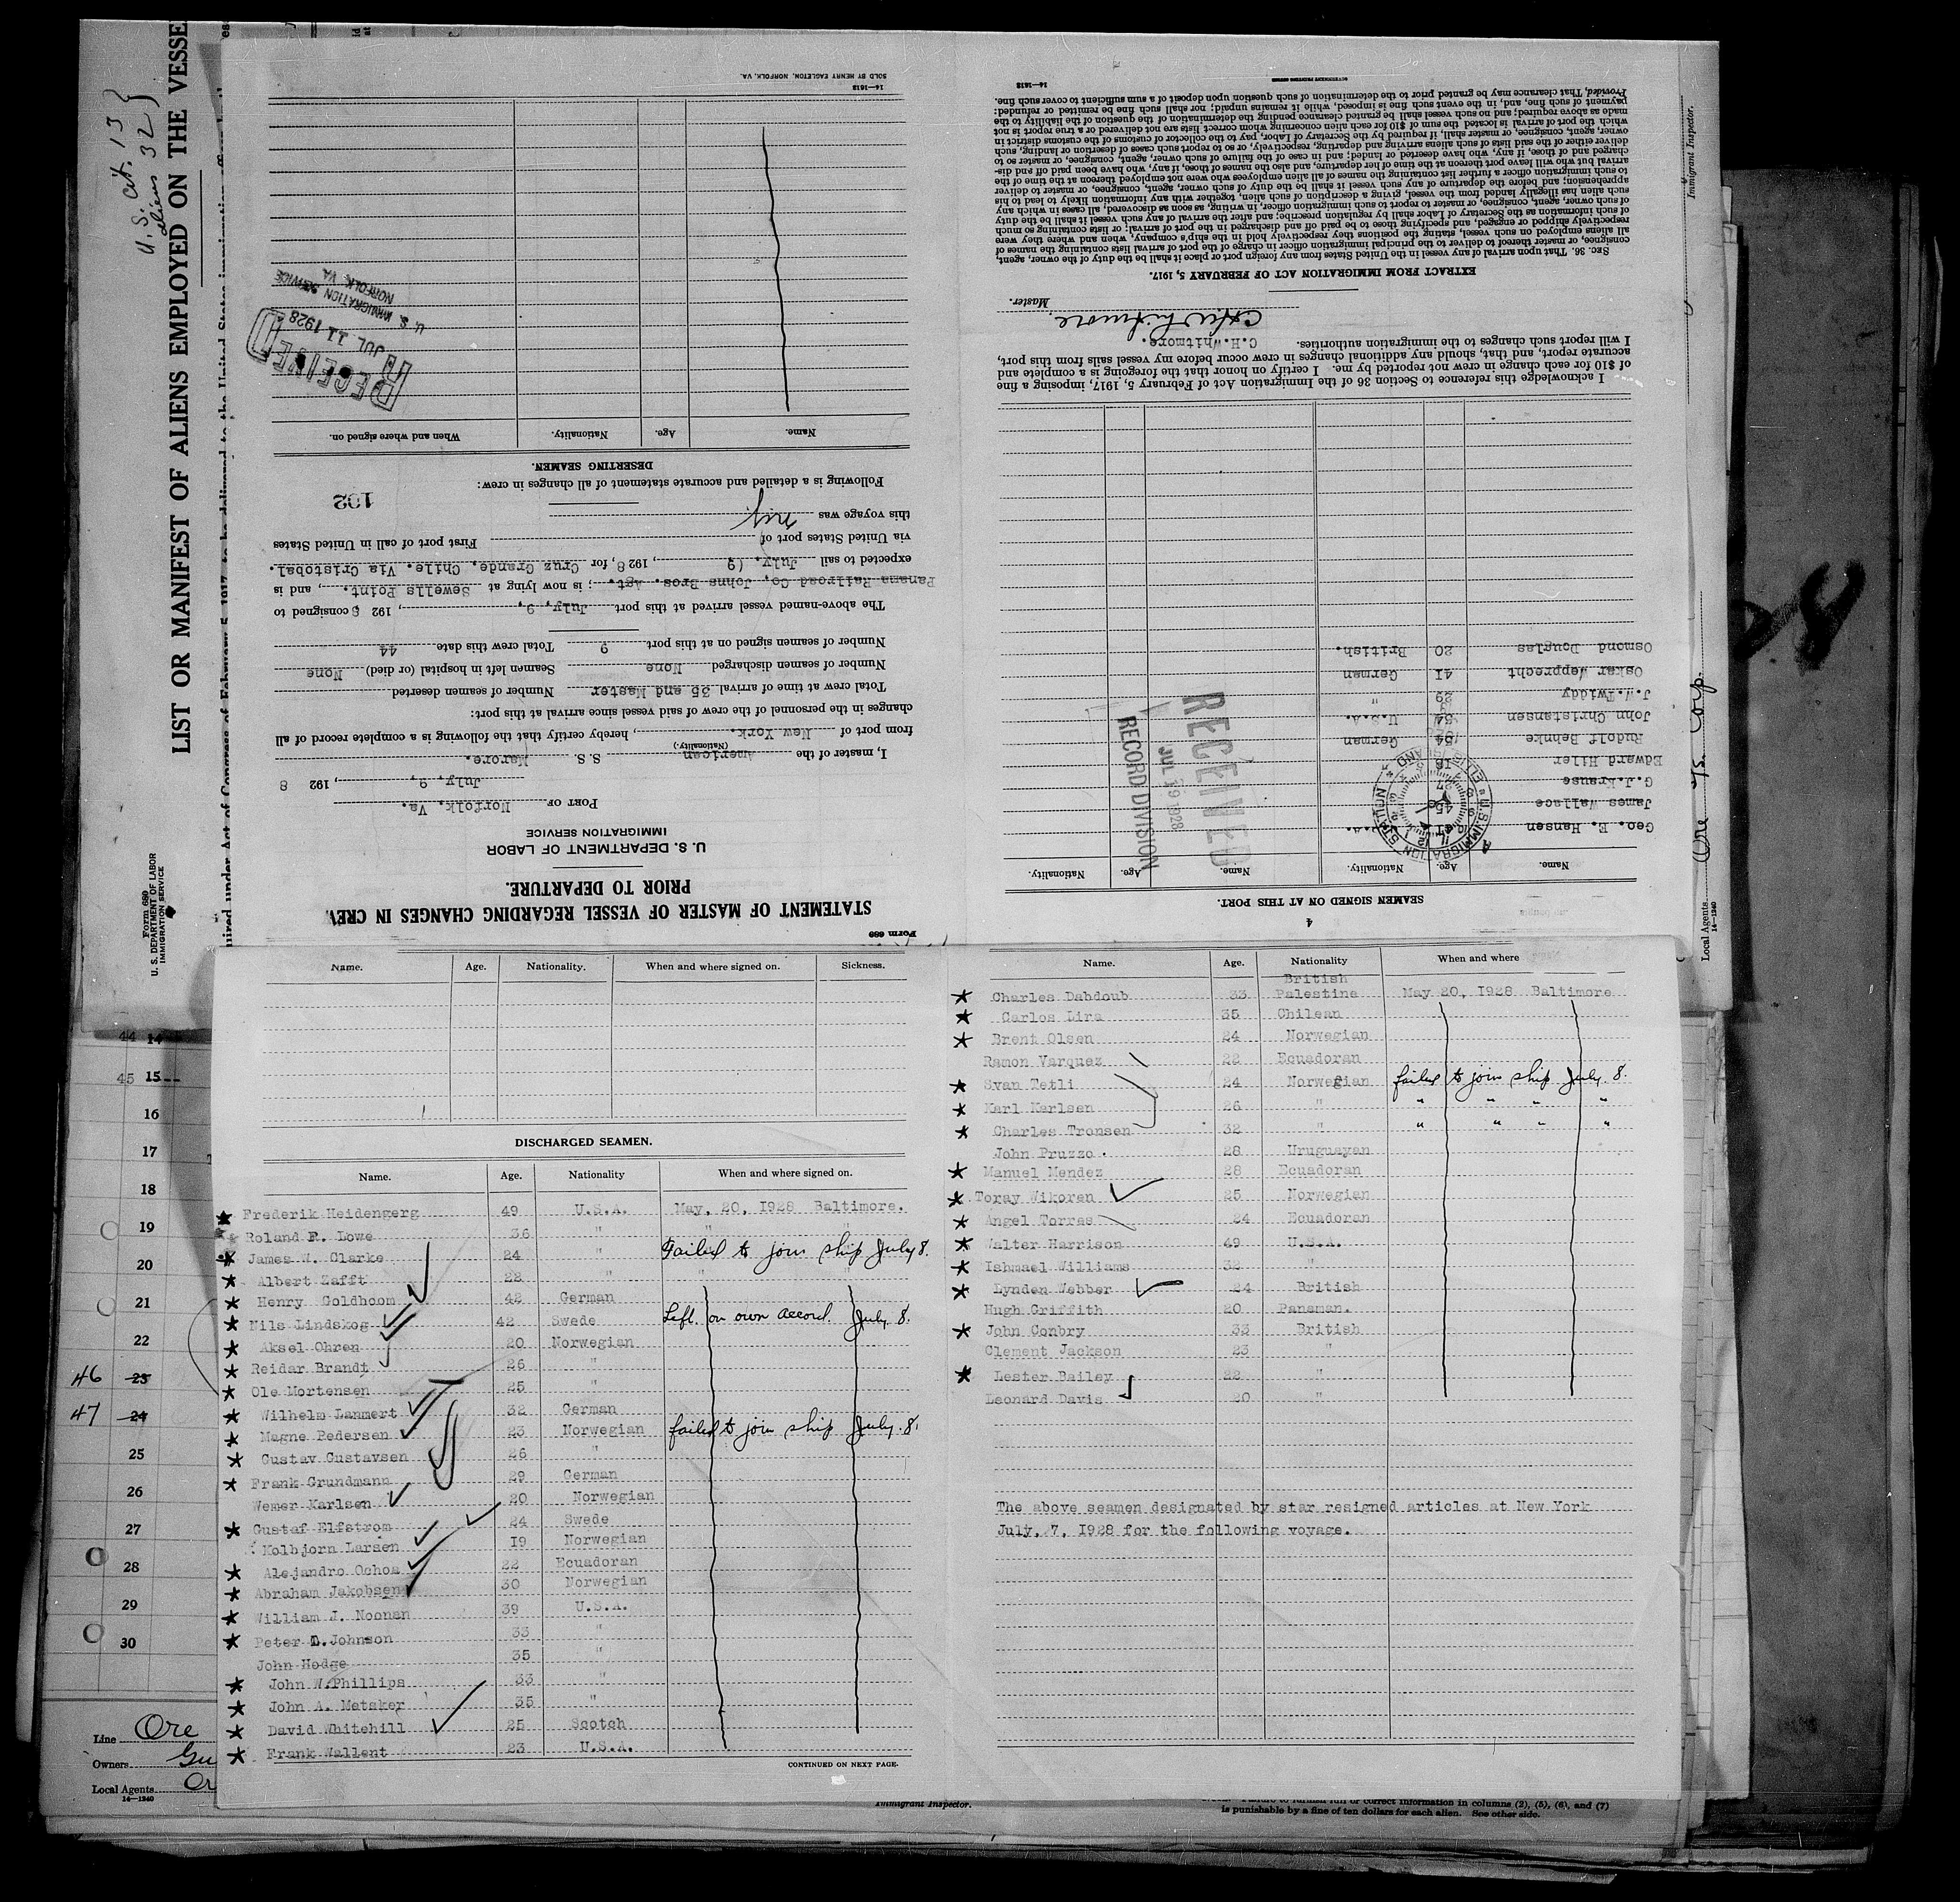 LIST OR MANIFEST OF ALIENS EMPLOYED ON THE VESSE
U. S. cit. 13
aliens 32
Form 689
U. S. DEPARTMENT OF LABOR
IMMIGRATION SERVICE
Form 689
STATEMENT OF MASTER OF VESSEL REGARDING CHANGES IN CREW
PRIOR TO DEPARTURE.
U. S. DEPARTMENT OF LABOR
IMMIGRATION SERVICE
PORT OF Norfolk. Va.
July, 9, , 192 8
I, master of the American S. S. Marore.
(Nationality.)
from port of New York. , hereby certify that the following is a complete record of all
changes in the personnel of the crew of said vessel since arrival at this port:
Total crew at time of arrival 35 and Master Number of seamen deserted
Number of seamen discharged None Seamen left in hospital (or died) None
Number of seamen signed on at this port 9 Total crew this date 44
The above-named vessel arrived at this port July, 9, , 192 8 consigned to
Panama Railroad Co. Johns Bros. Agt. ; is now lying at Sewells Point. , and is
expected to sail July. (9 , 192 8, for Cruz Grande. Chile. Via Cristobal.
via United States port of First port of call in United States
this voyage was N.Y.
Following is a detailed and accurate statement of all changes in crew:
192
DESERTING SEAMEN.
Name. Age. Nationality. When and where signed on.
RECEIVED
JUL 11 1928
U. S. IMMIGRATION SERVICE
NORFOLK, VA
14—1613
SOLD BY HENRY EAGLETON, NORFOLK, VA.
4
SEAMEN SIGNED ON AT THIS PORT.
Name. Age. Nationality. Name. Age. Nationality.
Geo. E. Hansen
James Wallace 45
G.J.Krause
Edward Hiler
Rudolf Behnke German
John Christansen U.S.A.
J.W.Twiddy 29 "
Oskar Wepprecht 41 German
Osmond Douglas 20 British.
RECEIVED
JUL 19 1928
RECORD DIVISION
U.S. IMMIGRATION STATION
ELLIS ISLAND
I acknowledge this reference to Section 36 of the Immigration Act of February 5, 1917, imposing a fine
of $10 for each change in crew not reported by me. I certify on honor that the foregoing is a complete and
accurate report, and that, should any additional changes in crew occur before my vessel sails from this port,
I will report such changes to the immigration authorities. C.H.Whitmore.
C H Whitmore.
Master.
EXTRACT FROM IMMIGRATION ACT OF FEBRUARY 5, 1917.
Sec. 36. That upon arrival of any vessel in the United States from any foreign port or place it shall be the duty of the owner, agent,
consignee, or master thereof to deliver to the principal immigration officer in charge of the port of arrival lists containing the names of
all aliens employed on such vessel, stating the positions they respectively hold in the ship's company, when and where they were
respectively shipped or engaged, and specifying those to be paid off and discharged in the port of arrival; or lists containing so much
of such information as the Secretary of Labor shall by regulation prescribe; and after the arrival of any such vessel it shall be the duty
of such owner, agent, consignee, or master to report to such immigration officer, in writing, as soon as discovered, all cases in which any
such alien has illegally landed from the vessel, giving a description of such alien, together with any information likely to lead to his
apprehension; and before the departure of any such vessel it shall be the duty of such owner, agent, consignee, or master to deliver
to such immigration officer a further list containing the names of all alien employees who were not employed thereon at the time of the
arrival but who will leave port thereon at the time of her departure, and also the names of those, if any, who have been paid off and dis-
charged and of those, if any, who have deserted or landed; and in case of the failure of such owner, agent, consignee, or master so to
deliver either of the said lists of such aliens arriving and departing, respectively, or so to report such cases of desertion or landing, such
owner, agent, consignee, or master shall, if required by the Secretary of Labor, pay to the collector of customs of the customs district in
which the port of arrival is located the sum of $10 for each alien concerning whom correct lists are not delivered or a true report is not
made as above required; and no such vessel shall be granted clearance pending the determination of the question of the liability to the
payment of such fine, and, in the event such fine is imposed, while it remains unpaid; nor shall such fine be remitted or refunded:
Provided, That clearance may be granted prior to the determination of such question upon deposit of a sum sufficient to cover such fine.
14—1613
GOVERNMENT PRINTING OFFICE
Immigrant Inspector.
Local Agents Ore SS Corp.
14—1240
Name. Age. Nationality. When and where signed on. Sickness.
DISCHARGED SEAMEN.
Name. Age. Nationality When and where signed on.
Frederik Heidengerg 49 U.S.A. May, 20, 1928 Baltimore.
Roland F. Lowe 36 " " "
James W. Clarke 24 " Failed to join ship July 8.
Albert Zafft 22 " "
Henry Goldhoom 42 German
Nils Lindskog 42 Swede Left on own accord. July 8.
Aksel Ohren 20 Norwegian
Reidar Brandt 26 "
Ole Mortensen 25 "
Wilhelm Lammert 32 German
Magne Pedersen 23 Norwegian failed to join ship July 8.
Gustav Gustavsen 26 "
Frank Grundmann 29 German
Wemer Karlsen 20 Norwegian
Gustaf Elfstrom 24 Swede
Kolbjorn Larsen 19 Norwegian
Alejandro Ochoa 22 Ecuadoran
Abraham Jakobsen 30 Norwegian
William J. Noonan 39 U.S.A.
Peter D. Johnson 33 "
John Hodge 35 "
John W. Phillips 33 "
John A. Metsker 35 "
David Whitehill 25 Scotch
Frank Wallent 23 U.S.A.
CONTINUED ON NEXT PAGE.
Name. Age. Nationality When and where
British
Charles Dabdoub 33 Palestine May 20, 1928 Baltimore
Carlos Lira 35 Chilean
Brent Olsen 24 Norwegian
Ramon Varquez 22 Ecuadoran
Svan Tetli 24 Norwegian failed to join ship July 8.
Karl Karlsen 26 " " " " "
Charles Tronsen 32 " " " " "
John Pruzzo 28 Uruguayan
Manuel Mendez 28 Ecuadoran
Toray Wikoren 25 Norwegian
Angel Torras 24 Ecuadoran
Walter Harrison 49 U.S.A.
Ishmael Williams 32 "
Lynden Webber 24 British
Hugh Griffith 20 Panaman.
John Conbry 33 British
Clement Jackson 23 "
Lester Bailey 22 "
Leonard Davis 20 "
The above seamen designated by star resigned articles at New York
July, 7, 1928 for the following voyage.
44 14
45 15
16
17
18
19
20
21
22
46 23
47 24
25
26
27
28
29
30
Line Ore
Owners
Local Agents
14—1240
Immigrant Inspector.
correct information in columns (2), (5), (6), and (7)
is punishable by a fine of ten dollars for each alien. See other side.